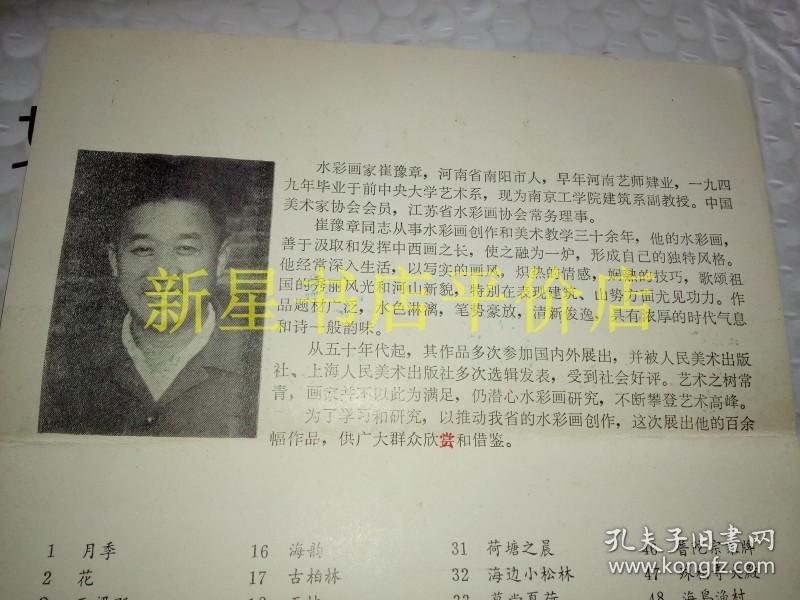 水彩画家崔豫章，河南省南阳市人，早年河南艺师肄业，一九四
九年毕业于前中央大学艺术系，现为南京工学院建筑系副教授。中国
美术家协会会员，江苏省水彩画协会常务理事。
崔豫章同志从事水彩画创作和美术教学三十余年，他的水彩画，
善于汲取和发挥中西画之长，使之融为一炉，形成自己的独特风格。
他经常深入生活，以写实的画风，炽热的情感，娴熟的技巧，歌颂祖
国的秀丽风光和河山新貌，特别在表现建筑、山势方面尤见功力。作
品题材广泛，水色淋漓，笔势豪放，清新俊逸，具有浓厚的时代气息
和诗一般韵味。
从五十年代起，其作品多次参加国内外展出，并被人民美术出版
社、上海人民美术出版社多次选辑发表，受到社会好评。艺术之树常
青，画家并不以此为满足，仍潜心水彩画研究，不断攀登艺术高峰。
为了学习和研究，以推动我省的水彩画创作，这次展出他的百余
幅作品，供广大群众欣赏和借鉴。
新星书店平价店
1 月季 16 海韵 31 荷塘之晨 46
2 花 17 古柏林 32 海边小松林 47
33 48 海岛渔村
孔夫子旧书网
www.kongfz.com